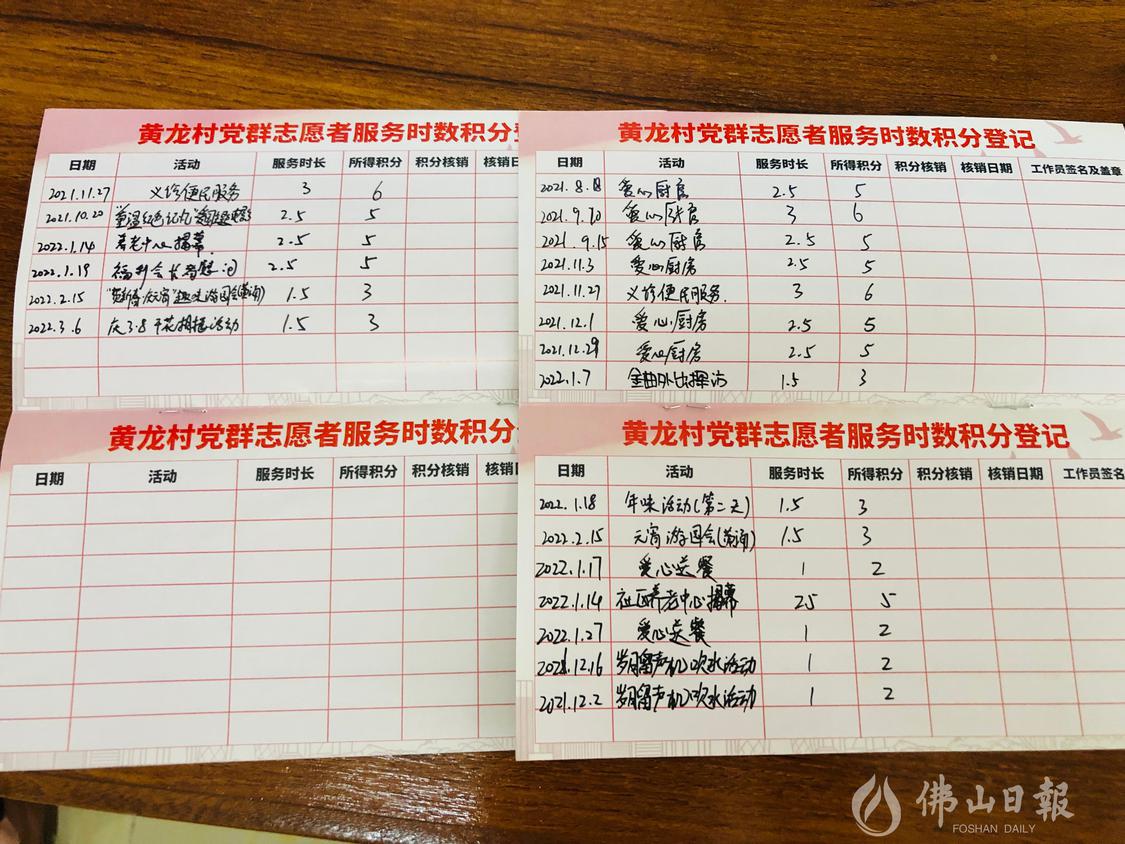 黄龙村党群志愿者服务时数积分
日期 活动 服务时长 所得积分 积分核销 核销日
2021.11.27 义诊便民服务 3 6
2021.10.20 "重温红色记忆 2.5 5
2022.1.14 养老中心揭幕 2.5 5
2022.1.19 福利会长者慰问 2.5 5
2022.2.15 "贺新春·庆元宵"趣味游园会 1.5 3
2022.3.6 庆3·8 干花相框活动 1.5 3
黄龙村党群志愿者服务时数积分登记
日期 活动 服务时长 所得积分 积分核销 核销日期 工作员签名及盖章
2021.8.8 爱心厨房 2.5 5
2021.9.10 爱心厨房 3 6
2021.9.15 爱心厨房 2.5 5
2021.11.3 爱心厨房 2.5 5
2021.11.27 义诊便民服务. 3 6
2021.12.1 爱心厨房 2.5 5
2021.12.29 爱心厨房 2.5 5
2022.1.7 外出探访 1.5 3
黄龙村党群志愿者服务时数积分
日期 活动 服务时长 所得积分 积分核销 核销
黄龙村党群志愿者服务时数积分登记
日期 活动 服务时长 所得积分 积分核销 核销日期 工作员签名
2022.1.18 年味活动(第二天) 1.5 3
2022.2.15 元宵游园会 1.5 3
2022.1.17 爱心送餐 1 2
2022.1.14 社区养老中心揭幕 2.5 5
2022.1.27 爱心送餐 1 2
2021.12.16 岁月留声机吹水活动 1 2
2021.12.2 岁月留声机吹水活动 1 2
佛山日報
FOSHAN DAILY